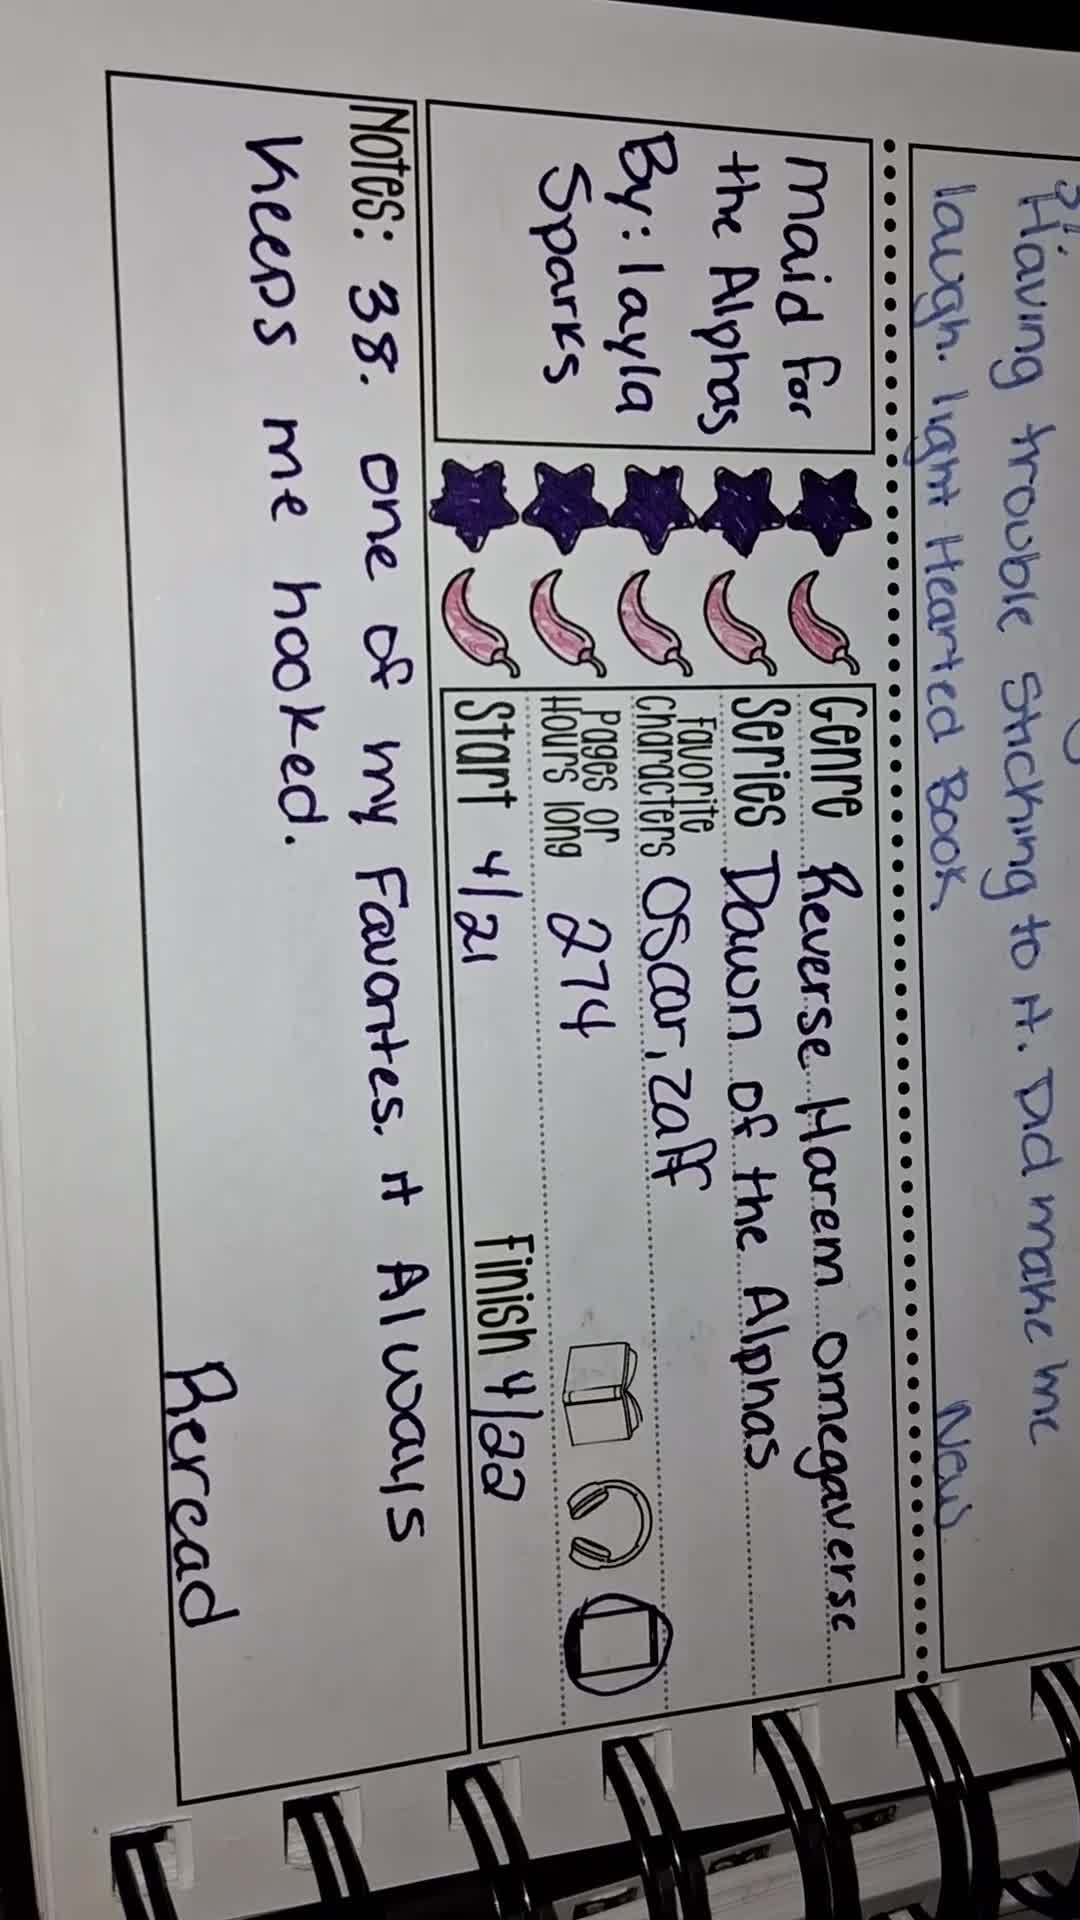 Having trouble Sticking to it. Did make me
laugh. light Hearted Book.
New
Maid for
the Alphas
By: layla
Sparks
Genre Reverse Harem omegaverse
Series Dawn of the Alphas
Favorite
characters Oscar, Zaff
Pages or
Hours long 274
Start 4/21
Finish 4/22
Notes: 38. one of my Favorites. it Always
Keeps me hooked.
Reread